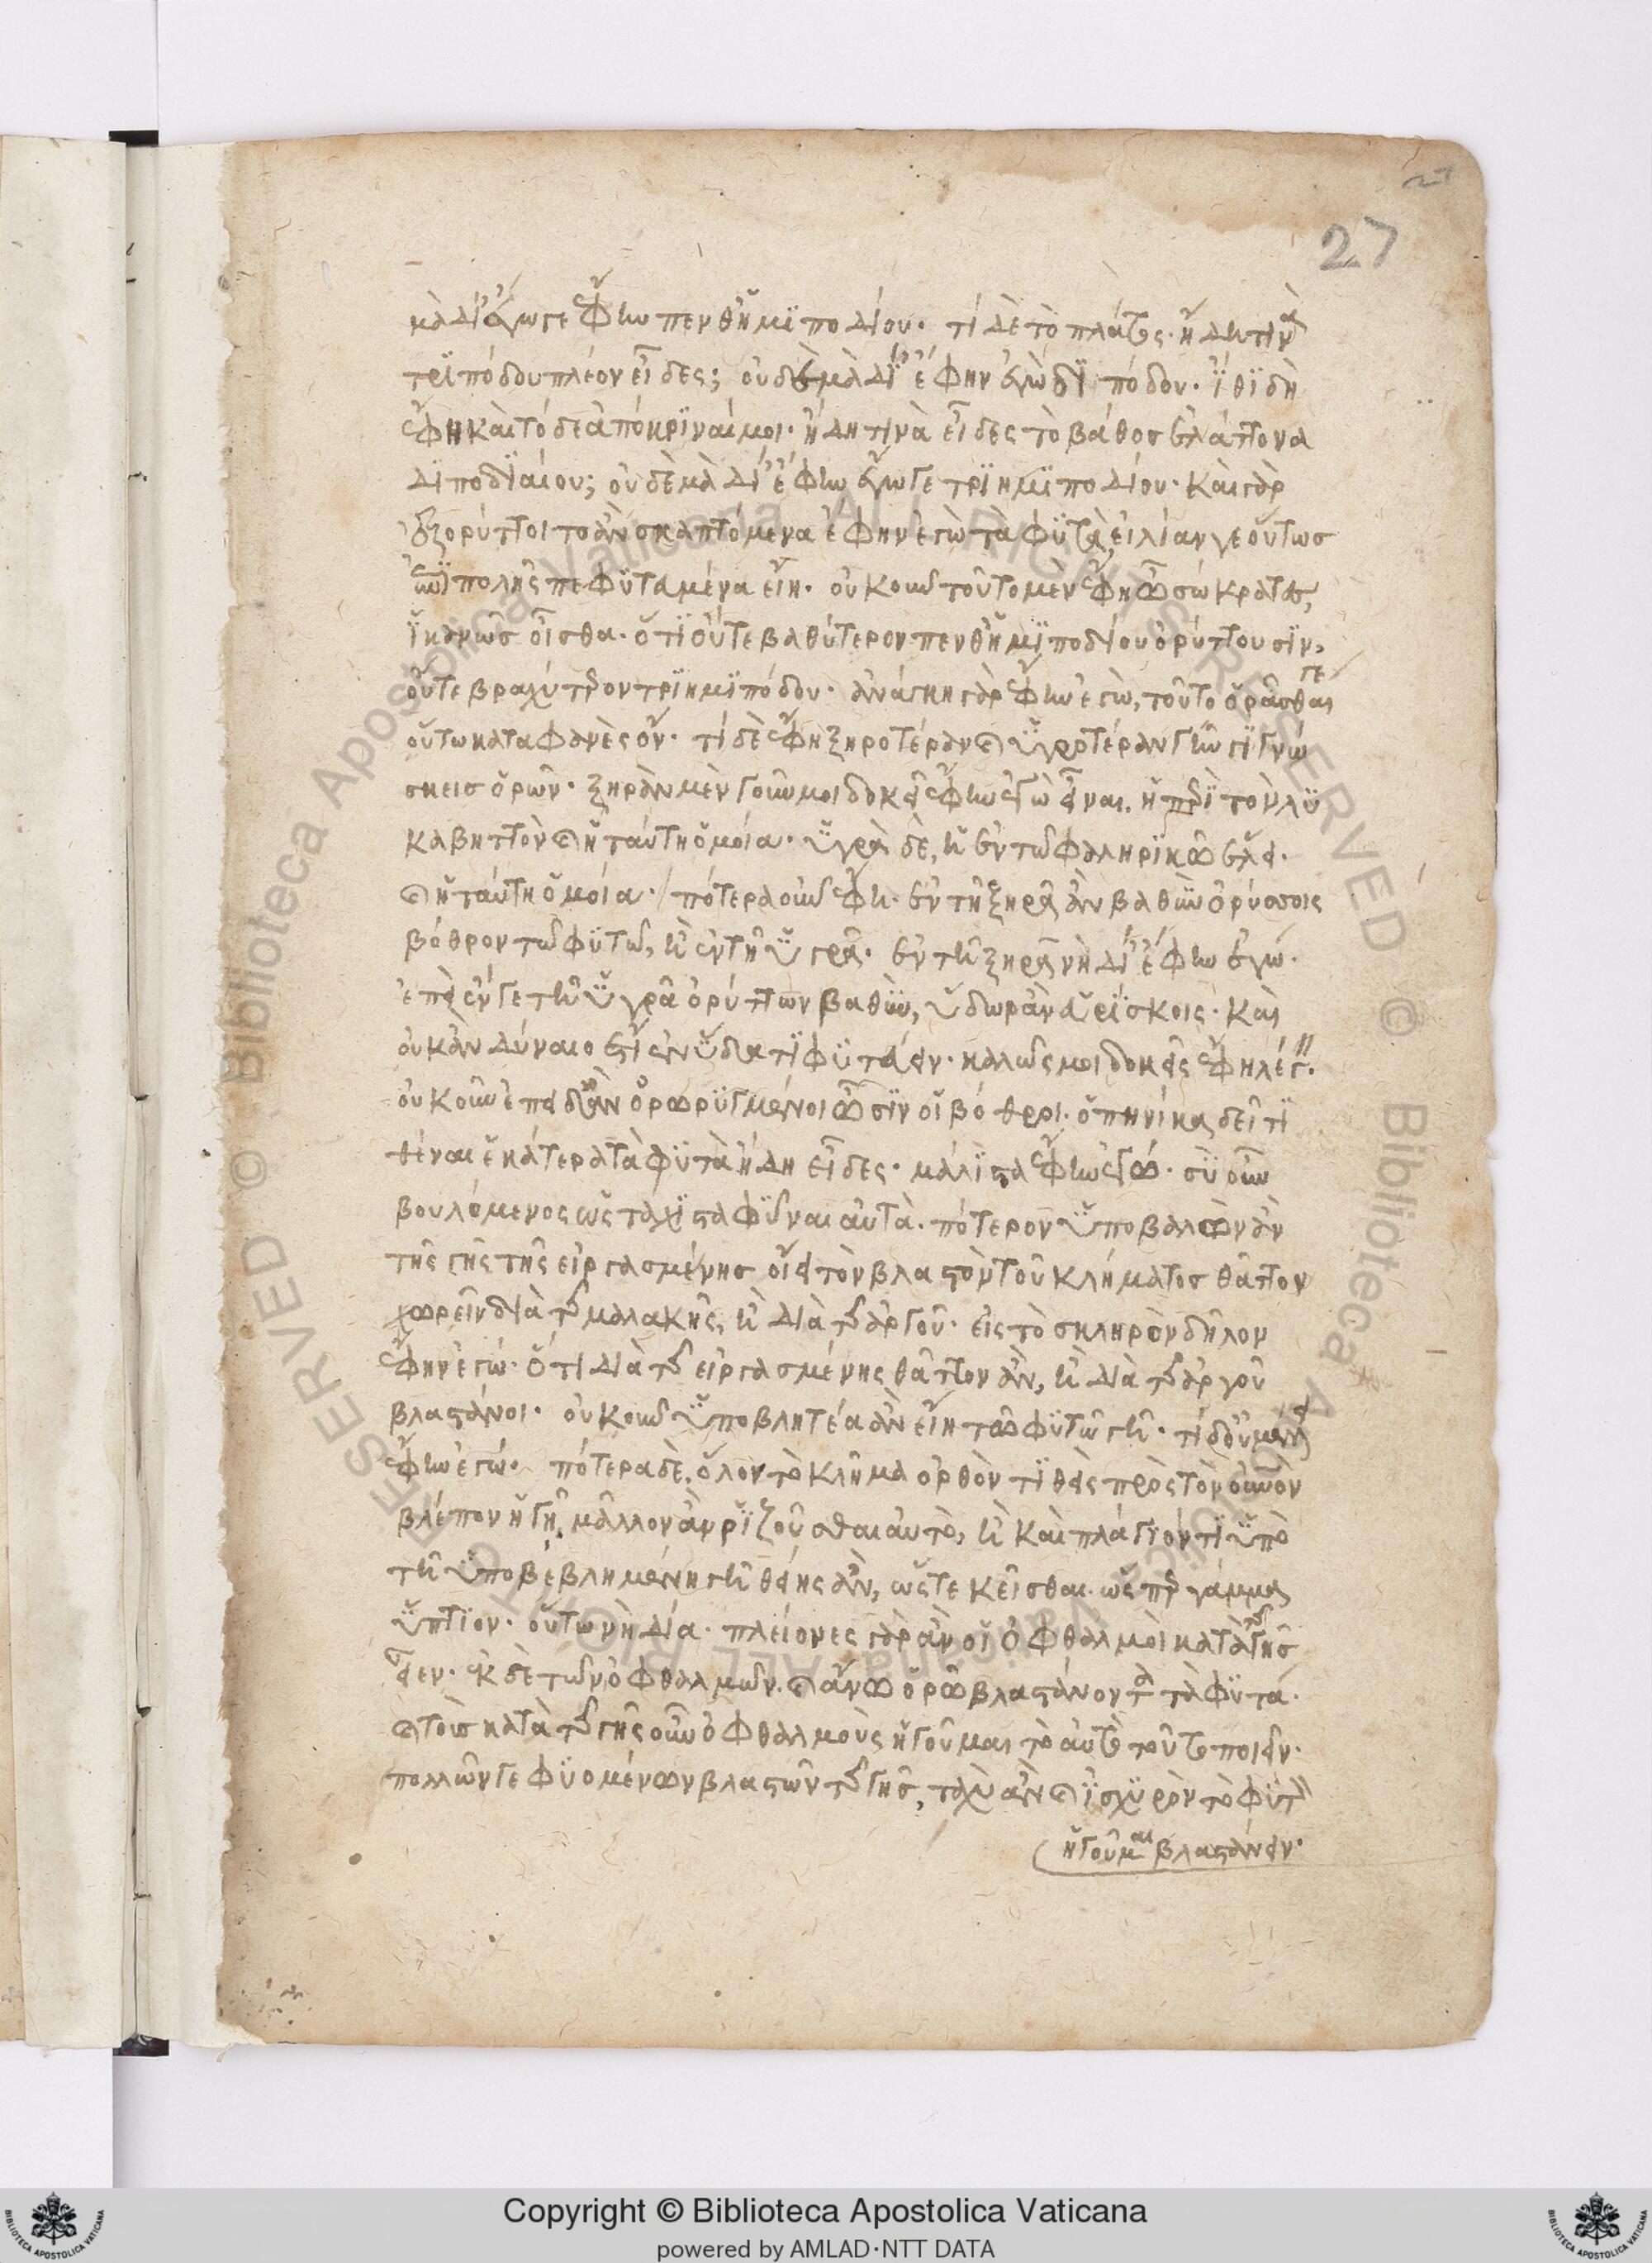 27
μὰ Δί' ἔγωγε ἔφην πενθημιποδίου. τί δὲ τὸ πλάτος. ἤδη τινὰ
τριπόδου πλέον εἶδες; οὐδὲ μὰ Δί' ἔφην ἐγὼ διπόδου. ἴθι δὴ
ἔφη καὶ τόδε ἀπόκριναί μοι. ἤδη τινὰ εἶδες τὸ βάθος ἐλάττονα
διποδιαίου; οὐδὲ μὰ Δί' ἔφην ἔγωγε τριημιποδίου. καὶ γὰρ
ἐξορύττοιτο ἂν σκαπτόμενα ἔφην ἐγὼ τὰ φυτὰ, εἰ λίαν γε οὕτως
ἐπιπολῆς πεφυτευμένα εἴη. οὐκοῦν τοῦτο μὲν ἔφη ὦ σώκρατες,
ἱκανῶς οἶσθα. ὅτι οὔτε βαθύτερον πενθημιποδίου ὀρύττουσιν,
οὔτε βραχύτερον τριημιπόδου. ἀνάγκη γὰρ ἔφην ἐγὼ, τοῦτο ὁρᾶσθαί γε
οὕτω καταφανὲς ὄν. τί δὲ ἔφη ξηροτέραν καὶ ὑγροτέραν γῆν γιγνώ
σκεις ὁρῶν. ξηρὰν μὲν γοῦν μοι δοκεῖ ἔφην ἐγὼ εἶναι. ἡ περὶ τὸν λυ
καβηττὸν καὶ ἡ ταύτῃ ὁμοία. ὑγρὰ δὲ, ἡ ἐν τῷ φαληρικῷ ἕλει.
καὶ ἡ ταύτῃ ὁμοία. πότερα οὖν ἔφη. ἐν τῇ ξηρᾷ ἂν βαθὺν ὀρύσσοις
βόθρον τῷ φυτῷ, ἢ ἐν τῇ ὑγρᾷ. ἐν τῇ ξηρᾷ νὴ Δί' ἔφην ἐγώ.
ἐπεὶ ἔν γε τῇ ὑγρᾷ ὀρύττων βαθὺν, ὕδωρ ἂν εὑρίσκοις. καὶ
οὐκ ἂν δύναιο ἔτι ἐν ὕδατι φυτεύειν. καλῶς μοι δοκεῖς ἔφη λέγ.
οὐκοῦν ἐπειδὰν ὀρωρυγμένοι ὦσιν οἱ βόθροι. ὁπηνίκα δεῖ τι
θέναι ἑκάτερα τὰ φυτὰ ἤδη εἶδες. μάλιστα ἔφην ἐγώ. σὺ οὖν
βουλόμενος ὡς τάχιστα φῦναι αὐτὰ. πότερον ὑποβαλὼν ἂν
τῆς γῆς τῆς εἰργασμένης οἴει τὸν βλαστὸν τοῦ κλήματος θᾶττον
χωρεῖν διὰ τῆς μαλακῆς, ἢ διὰ τῆς ἀργοῦ. εἰς τὸ σκληρὸν δῆλον
ἔφην ἐγώ. ὅτι διὰ τῆς εἰργασμένης θᾶττον ἂν, ἢ διὰ τῆς ἀργοῦ
βλαστάνοι. οὐκοῦν ὑποβλητέα ἂν εἴη τῷ φυτῷ γῆ. τί δ' οὐ μέλλει
ἔφην ἐγώ. πότερα δὲ, ὅλον τὸ κλῆμα ὀρθὸν τιθεὶς πρὸς τὸν οὐνὸν
βλέπον ἡγῇ, μᾶλλον ἂν ῥιζοῦσθαι αὐτὸ, ἢ καὶ πλάγιόν τι ὑπὸ
τῇ ὑποβεβλημένῃ γῇ θείης ἂν, ὥστε κεῖσθαι ὥσπερ γάμμα
ὕπτιον. οὕτω νὴ Δία. πλείονες γὰρ ἂν οἱ ὀφθαλμοὶ κατὰ τῆς γῆς
εἶεν. ἐκ δὲ τῶν ὀφθαλμῶν καὶ ἄνω ὁρῶ βλαστάνοντα τὰ φυτά.
καὶ τοὺς κατὰ τῆς γῆς οὖν ὀφθαλμοὺς ἡγοῦμαι τὸ αὐτὸ τοῦτο ποιεῖν.
πολλῶν γε φυομένων βλαστῶν τῆς γῆς, ταχὺ ἂν καὶ ἰσχυρὸν τὸ φυτὸν
ἡγοῦμαι βλαστάνειν.
Copyright © Biblioteca Apostolica Vaticana
powered by AMLAD·NTT DATA